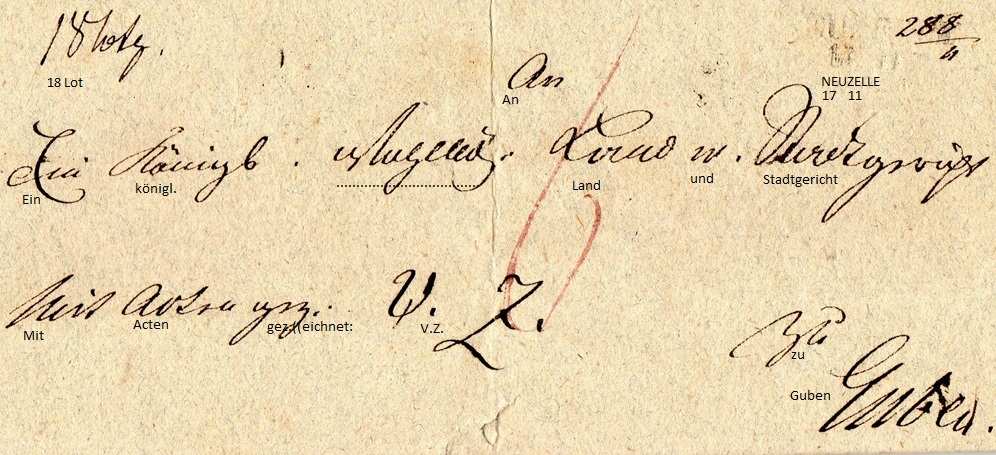 18 Loth.
288/11
18 Lot
An
An
NEUZELLE
17 11
Ein Königl. Land u. Stadtgericht
Ein königl. Land und Stadtgericht
Mit Acten gez. V. Z.
Mit Acten gez.((eichnet: V.Z.
zu
zu
Guben.
Guben